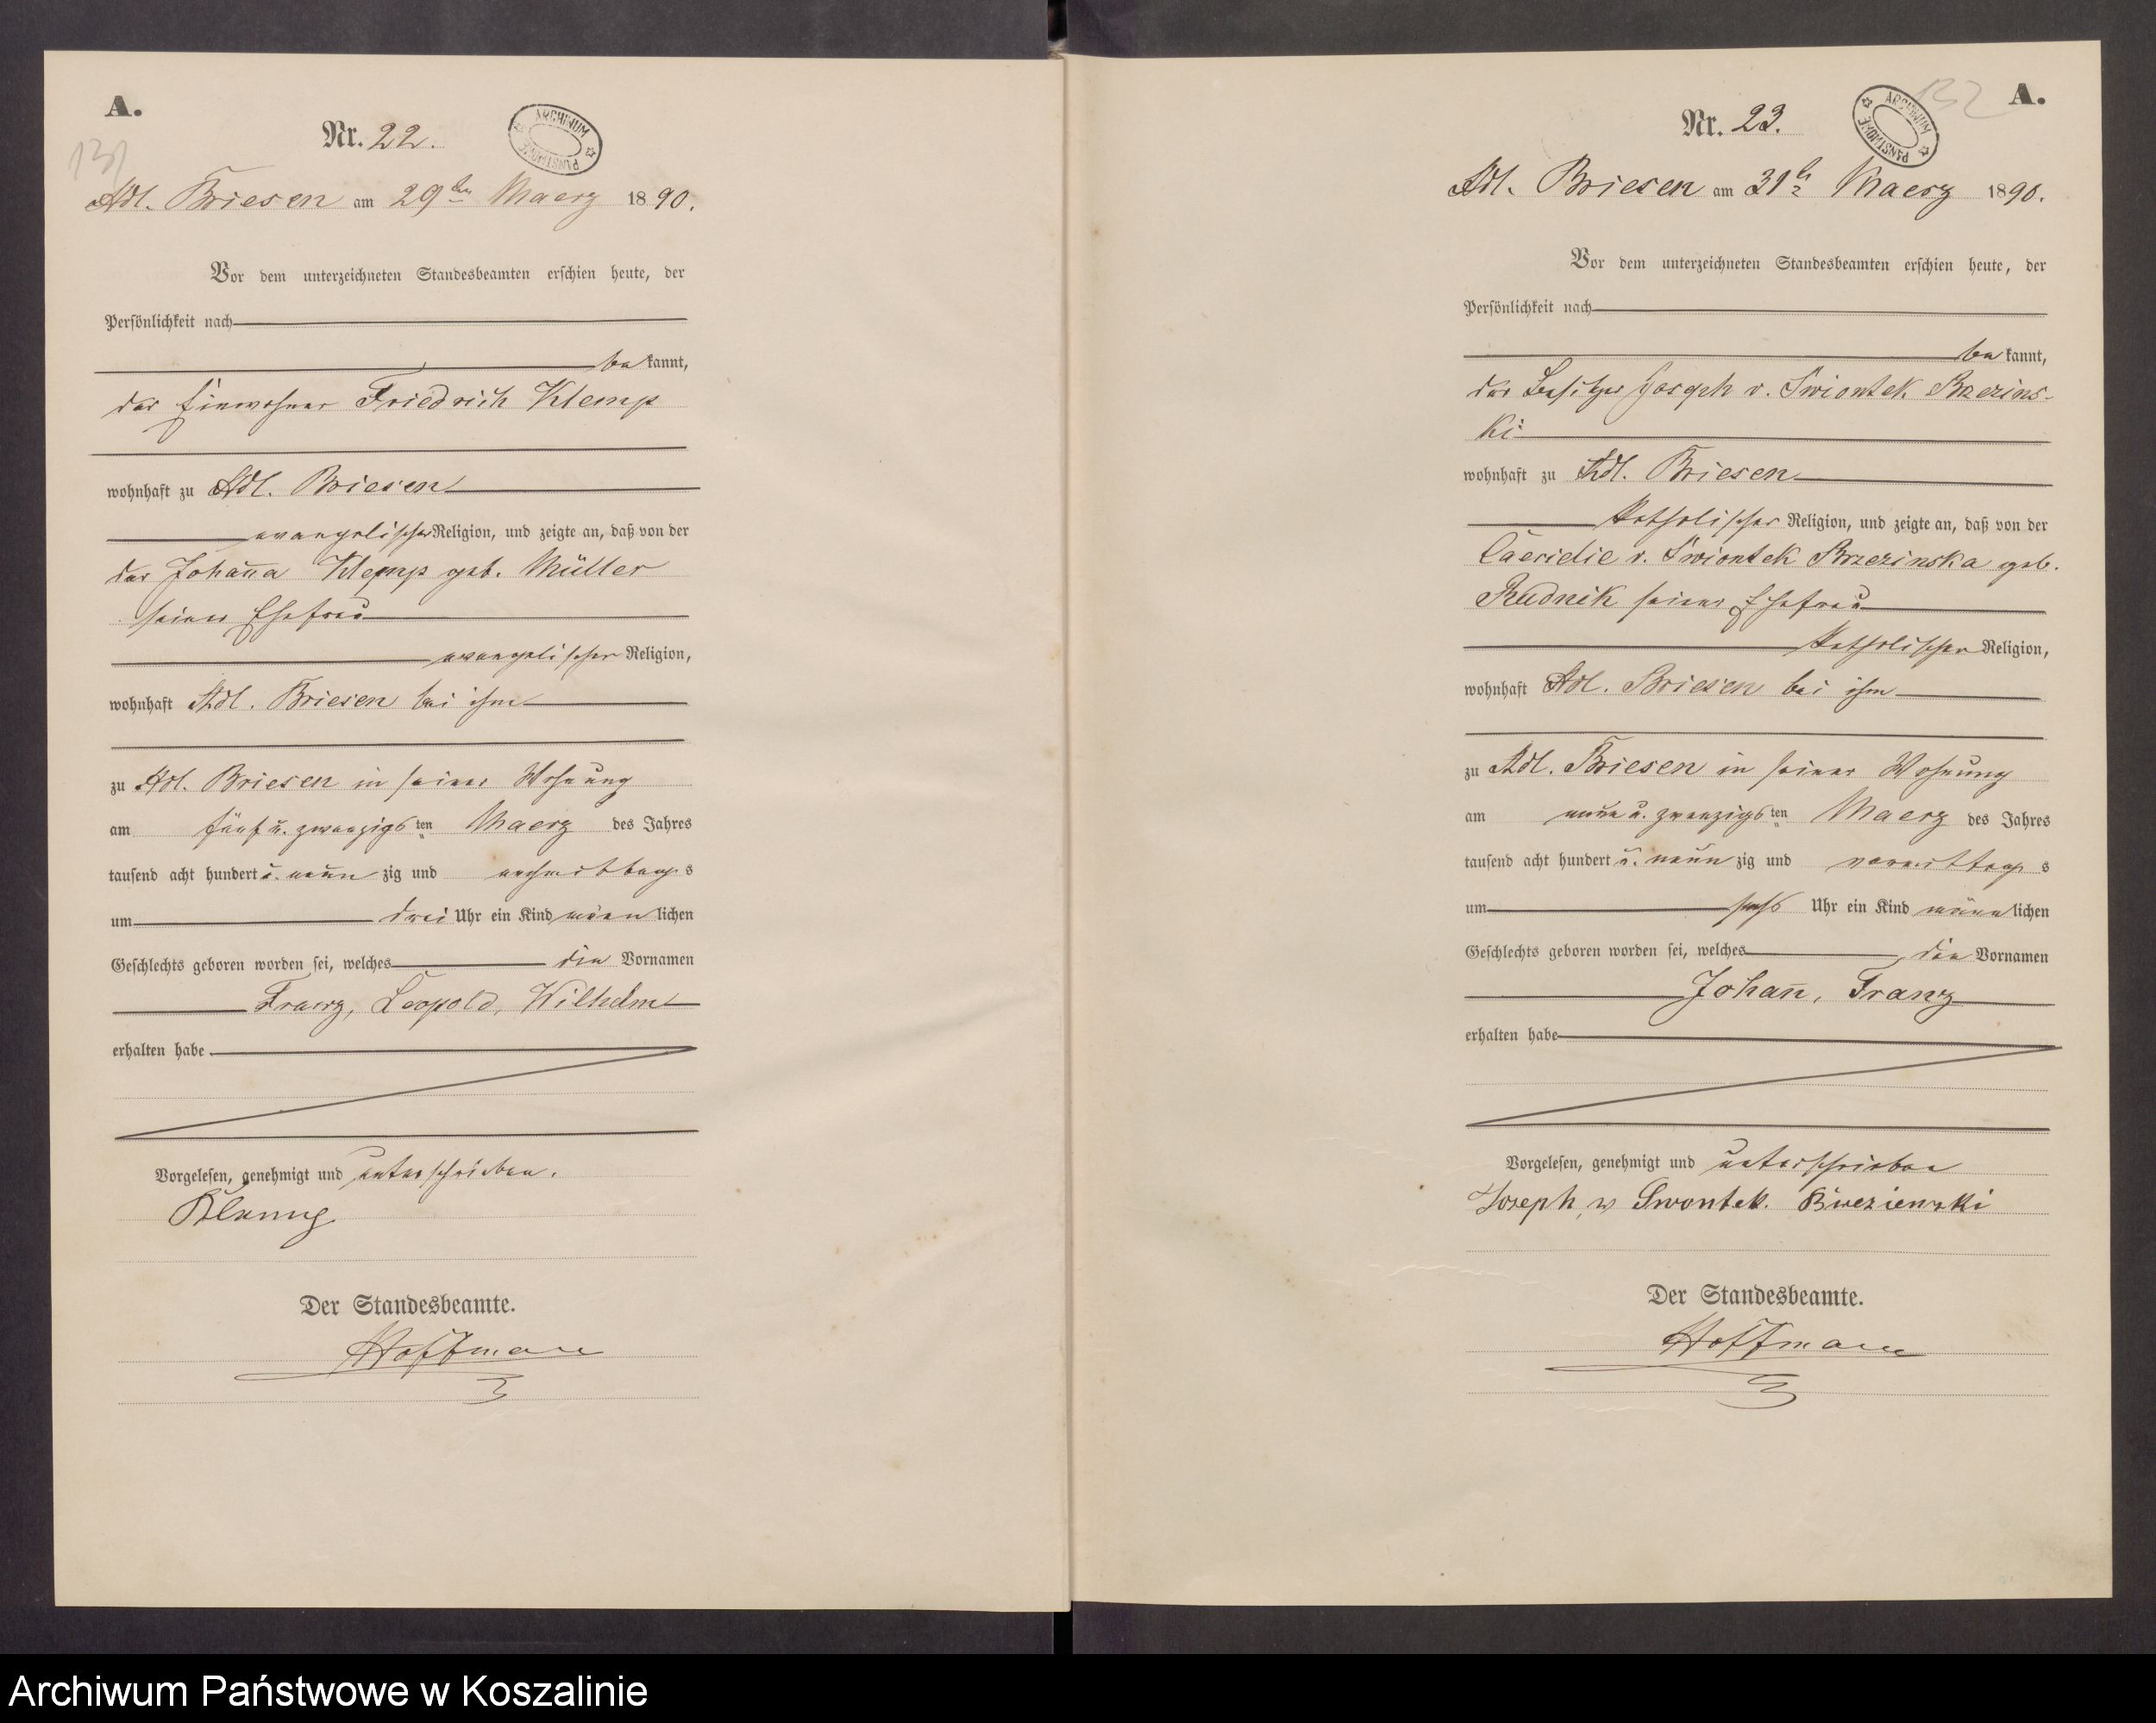 A.
131
Nr. 22.
ARCHIWUM PAŃSTWOWE
Adl. Briesen am 29ten Maerz 1890.
Vor dem unterzeichneten Standesbeamten erschien heute, der
Persönlichkeit nach
bekannt,
der Einwohner Friedrich Klemp
wohnhaft zu Adl. Briesen
evangelischer Religion, und zeigte an, daß von der
der Johan̄a Klemp geb. Müller
seiner Ehefrau
evangelischer Religion,
wohnhaft Adl. Briesen bei ihm
zu Adl. Briesen in seiner Wohnung
am fünf u. zwanzigsten Maerz des Jahres
tausend acht hundert u. neunzig und nachmittags
um drei Uhr ein Kind männlichen
Geschlechts geboren worden sei, welches die Vornamen
Franz, Leopold, Wilhelm
erhalten habe
Vorgelesen, genehmigt und unterschrieben.
Der Standesbeamte.
Hoffmann
A.
132
Nr. 23.
ARCHIWUM PAŃSTWOWE
Adl. Briesen am 31t Maerz 1890.
Vor dem unterzeichneten Standesbeamten erschien heute, der
Persönlichkeit nach
bekannt,
der Besitzer Joseph v. Swiontek Brzezins-
ki
wohnhaft zu Adl. Briesen
katholischer Religion, und zeigte an, daß von der
v. Swiontek Brzezinska geb.
Rudnik seiner Ehefrau
katholischer Religion,
wohnhaft Adl. Briesen bei ihm
zu Adl. Briesen in seiner Wohnung
am neun u. zwanzigsten Maerz des Jahres
tausend acht hundert u. neunzig und vormittags
um sechs Uhr ein Kind männlichen
Geschlechts geboren worden sei, welches die Vornamen
Johan̄, Franz
erhalten habe
Vorgelesen, genehmigt und unterschrieben
Joseph v Swontek. Brezienski
Der Standesbeamte.
Hoffmann
Archiwum Państwowe w Koszalinie